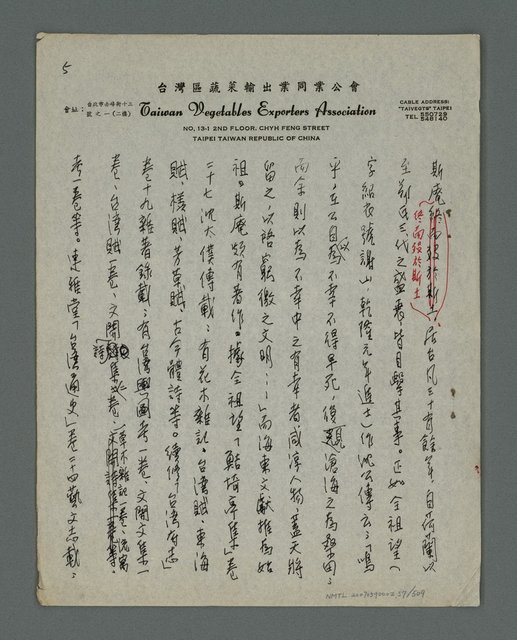 5
台灣區蔬菜輸出業同業公會
會址：台北市赤峰街十三號之一（二樓）
Taiwan Vegetables Exporters Association
CABLE ADDRESS: "TAIVEGTS" TAIPEI
TEL 550729 548140
NO. 13-1 2ND FLOOR, CHYH FENG STREET
TAIPEI TAIWAN REPUBLIC OF CHINA
斯庵終而歿於斯土，居台凡三十有餘年，自荷蘭以
終而歿於斯土
至鄭氏三代之盛衰，皆目擊其事。正如全祖望（
字紹衣號謝山，乾隆元年進士）作沈公傳云：「嗚
乎，在公自以為不幸不得早死，復觀滄海之為桑田；
而余則以為不幸中之有幸者，咸淳人物，蓋天將
留之，以啓窮徼之文明…」而海東文獻推為始
祖。斯庵頗有著作。據全祖望「鮚埼亭集」卷
二十七沈太僕傳載：有花木雜記、台灣賦、東海
賦、檨賦、芳草賦、古今體詩等。續修「台灣府志」
卷十九雜著錄載：有台灣輿圖考一卷、文開文集一
卷、台灣賦一卷、文開詩集一卷、草木雜記一卷、流寓
考一卷等。連雅堂「台灣通史」卷二十四藝文志載：
NMTL 20070390002 57/509